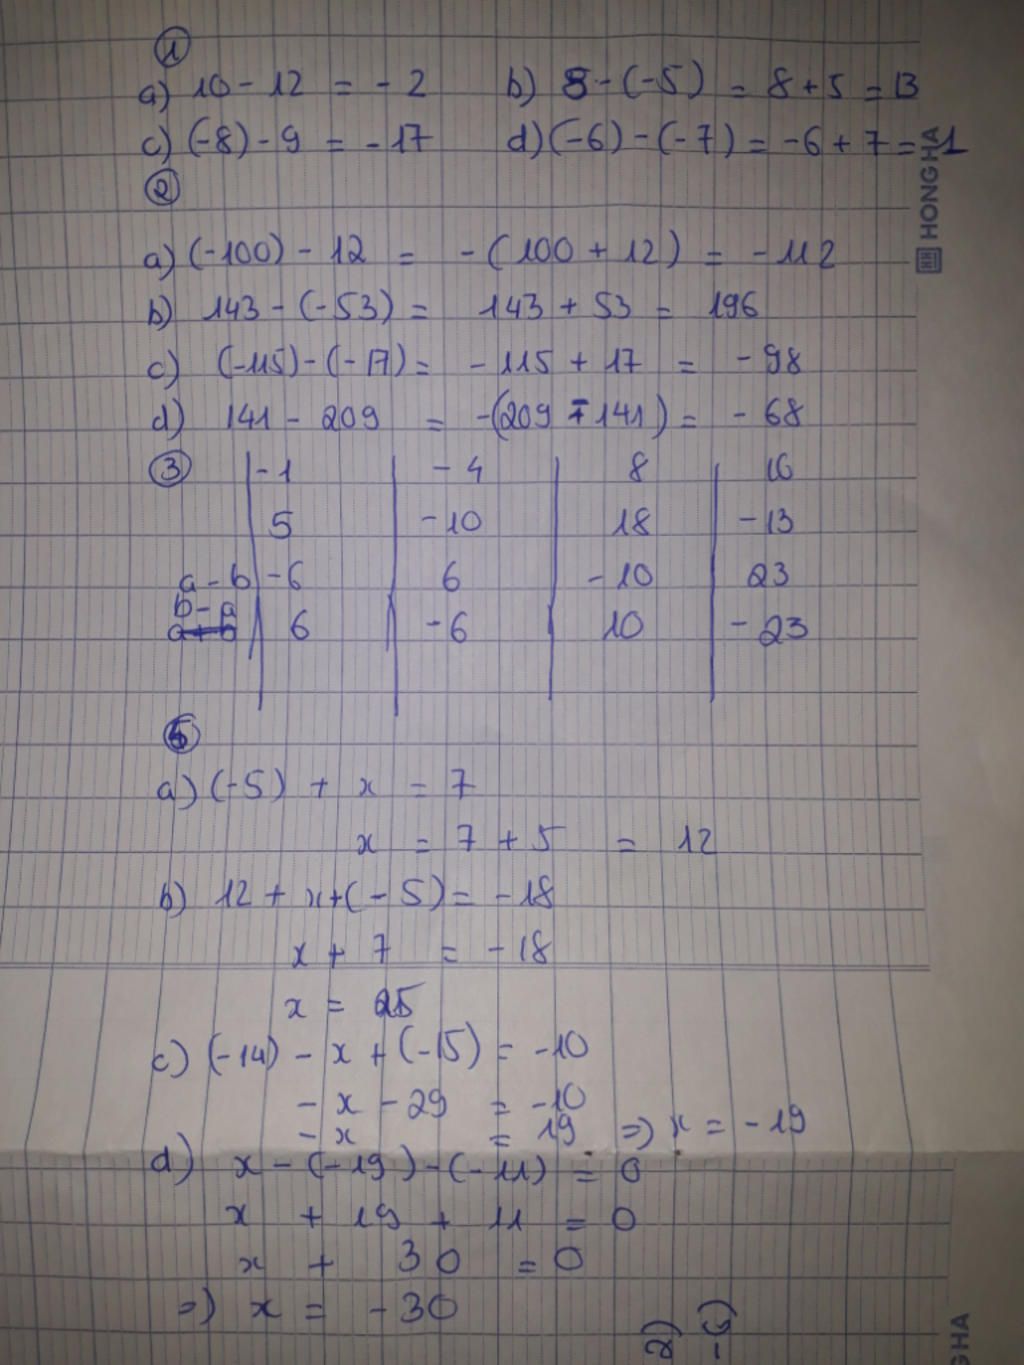 1
a) 10 - 12 = - 2 b) 8 - (-5) = 8 + 5 = 13
c) (-8) - 9 = - 17 d) (-6) - (-7) = -6 + 7 = 1
HONG HA
2
a) (-100) - 12 = - (100 + 12) = - 112
b) 143 - (-53) = 143 + 53 = 196
c) (-115) - (-17) = - 115 + 17 = - 98
d) 141 - 209 = -(209 - 141) = - 68
3 -1 - 4 8 16
5 -10 18 -13
a - b -6 6 -10 23
b - a 6 -6 10 - 23
5
a) (-5) + x = 7
x = 7 + 5 = 12
b) 12 + x + (-5) = -18
x + 7 = -18
x = 25
c) (-14) - x + (-15) = -10
- x - 29 = -10
- x = 19 => x = - 19
d) x - (-19) - (-11) = 0
x + 19 + 11 = 0
x + 30 = 0
=> x = - 30
2)
GHA